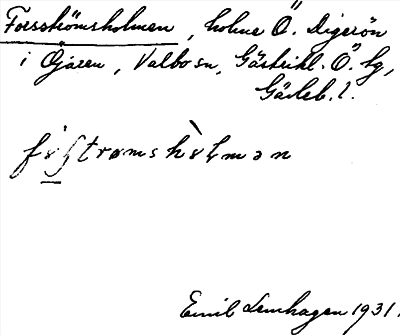 Forsströmsholmen, holme Ö. Digerön
i Öjaren, Valbo sn, Gästrikl. Ö. tg,
Gävleb. l.
fo̱ʂtrømshòlmən
Emil Lenhagen 1931.